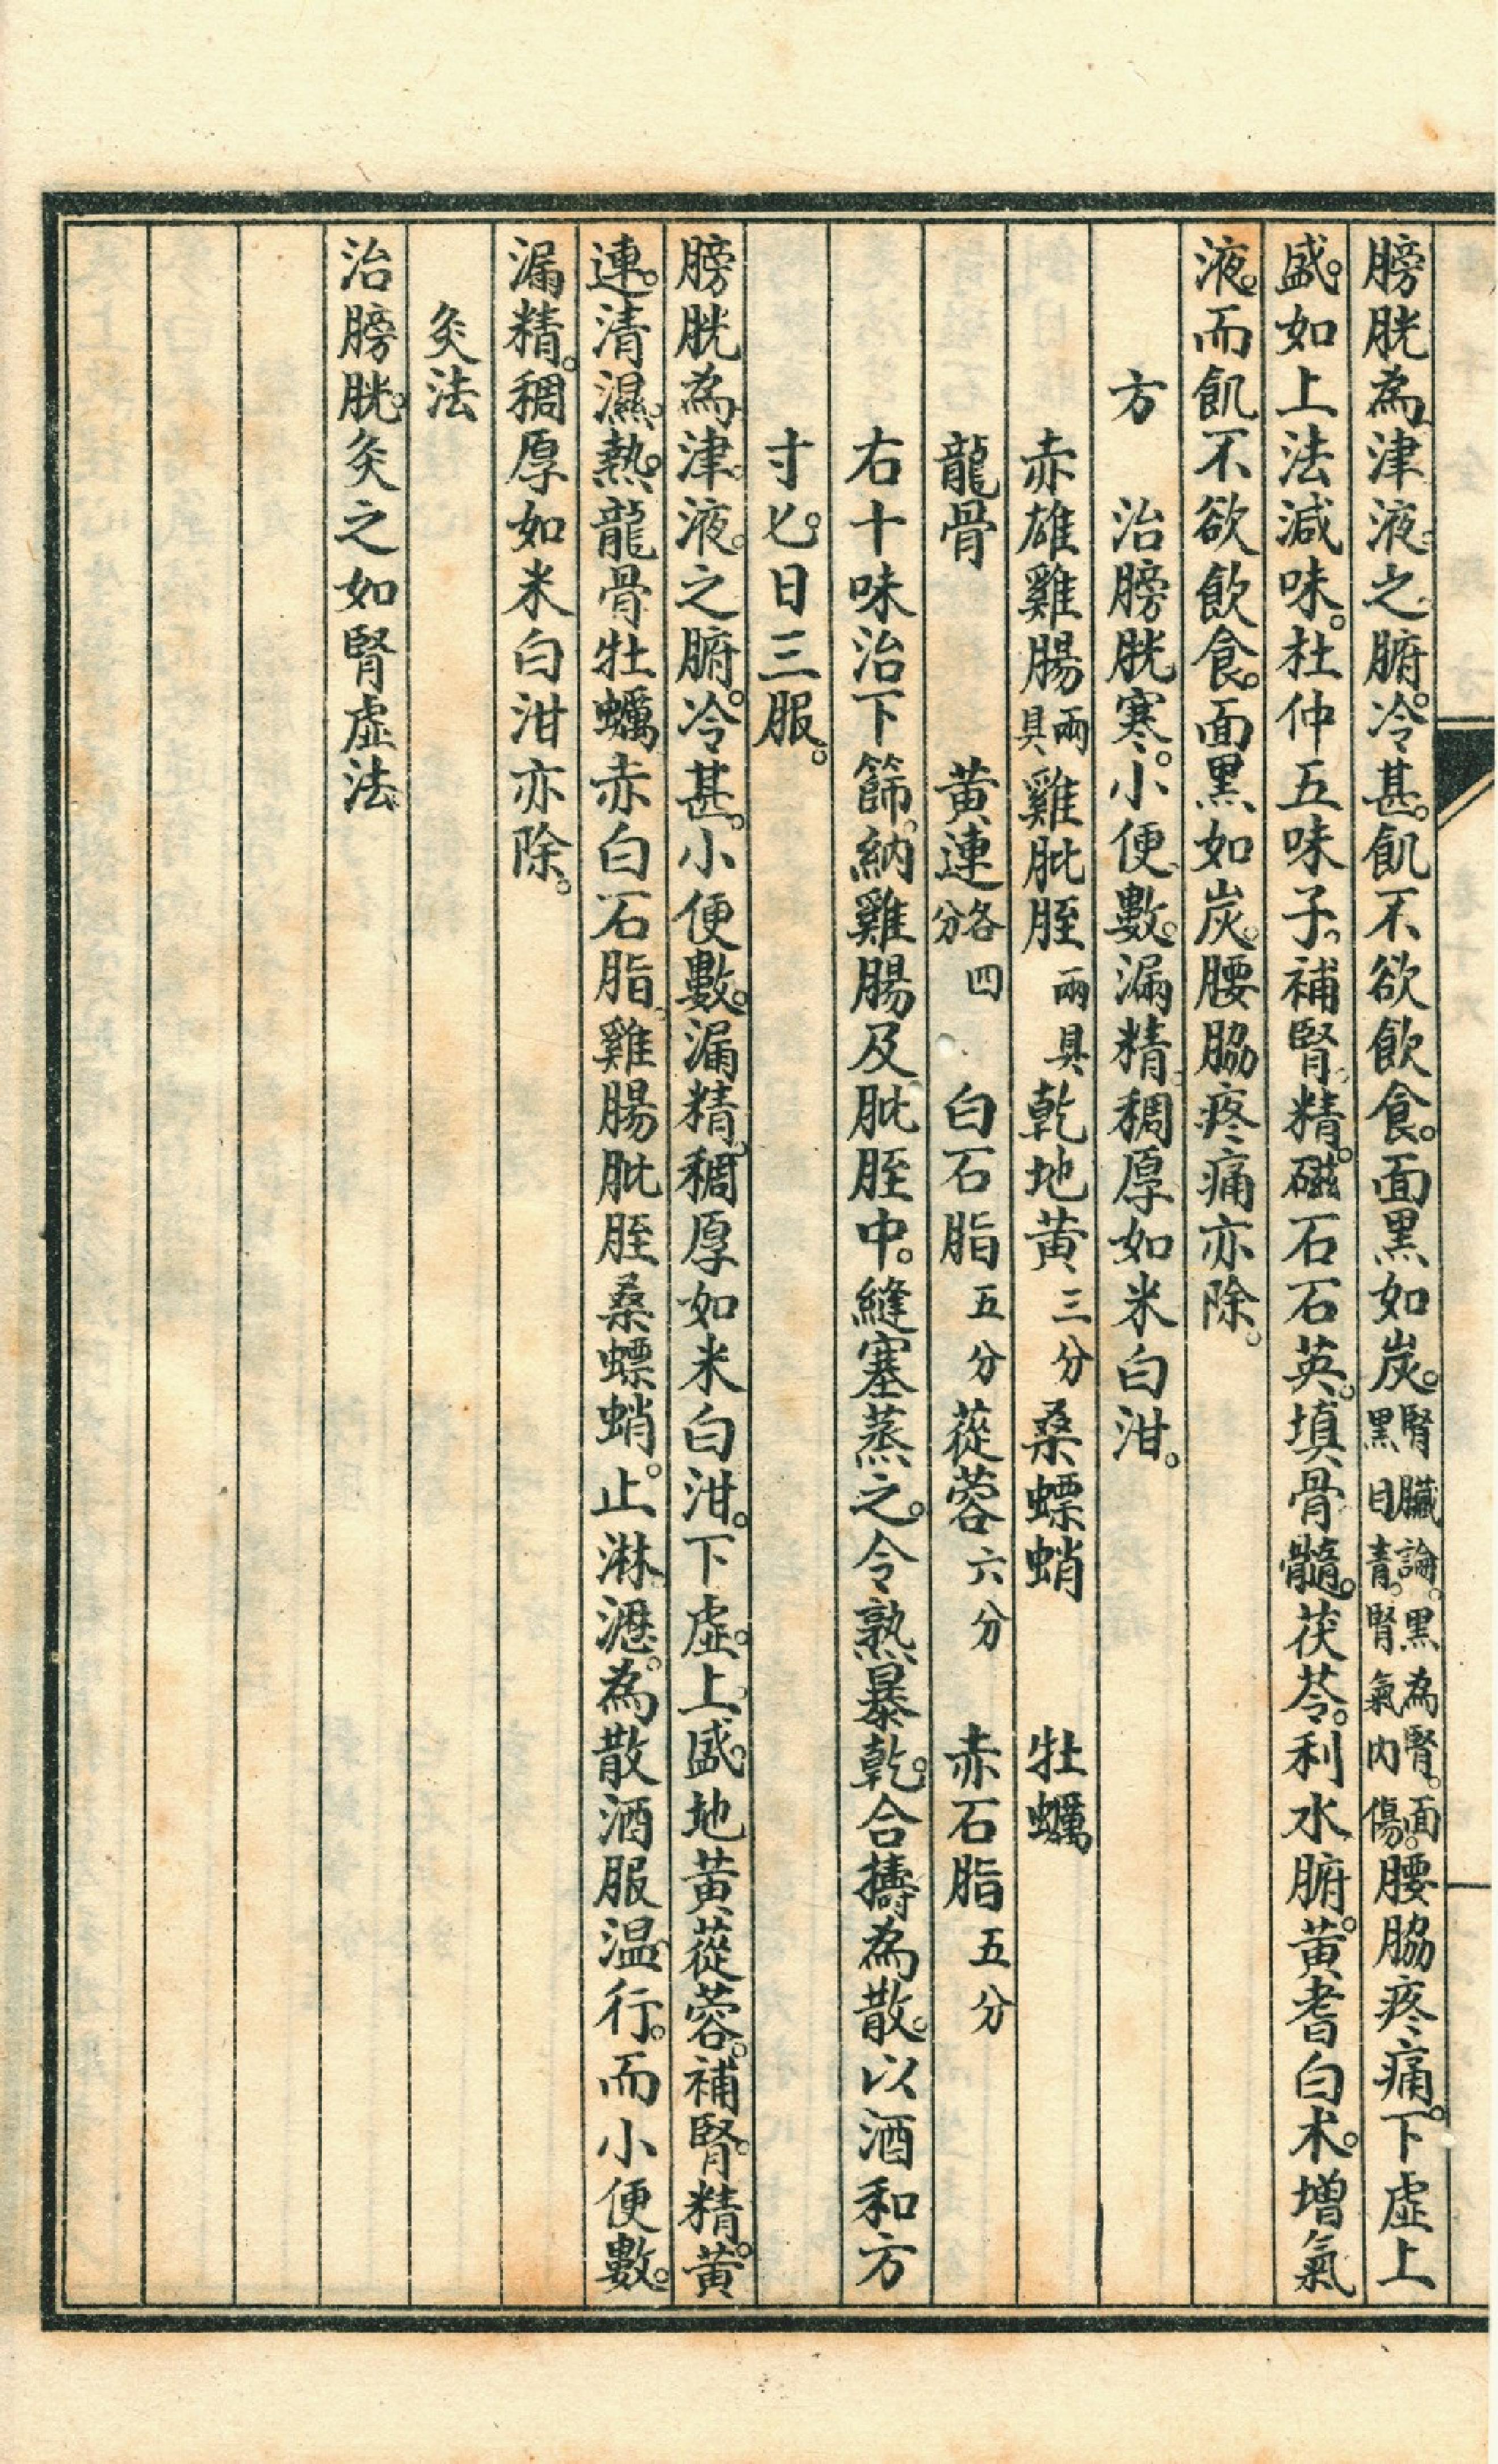 膀胱為津液之腑。冷甚。飢不欲飲食。面黑如炭。腎臟論。黑為腎。面黑目青。腎氣內傷。腰脇疼痛。下虛上
盛。如上法減味。杜仲五味子。補腎精。磁石石英。填骨髓。茯苓。利水腑。黃耆白朮。增氣
液。而飢不欲飲食。面黑如炭。腰脇疼痛亦除。
方　治膀胱寒。小便數。漏精。稠厚如米白泔。
赤雄雞腸兩具　雞肶胵兩具　乾地黃三分　桑螵蛸　牡蠣
龍骨　黃連各四分　白石脂五分　蓯蓉六分　赤石脂五分
右十味治下篩。納雞腸及肶胵中。縫塞蒸之。令熟暴乾。合擣為散。以酒和方
寸匕。日三服。
膀胱為津液之腑。冷甚。小便數。漏精。稠厚如米白泔。下虛。上盛。地黃蓯蓉。補腎精。黃
連。清濕熱。龍骨牡蠣赤白石脂。雞腸肶胵桑螵蛸。止淋瀝。為散酒服温行。而小便數。
漏精。稠厚如米白泔亦除。
灸法
治膀胱。灸之如腎虛法。